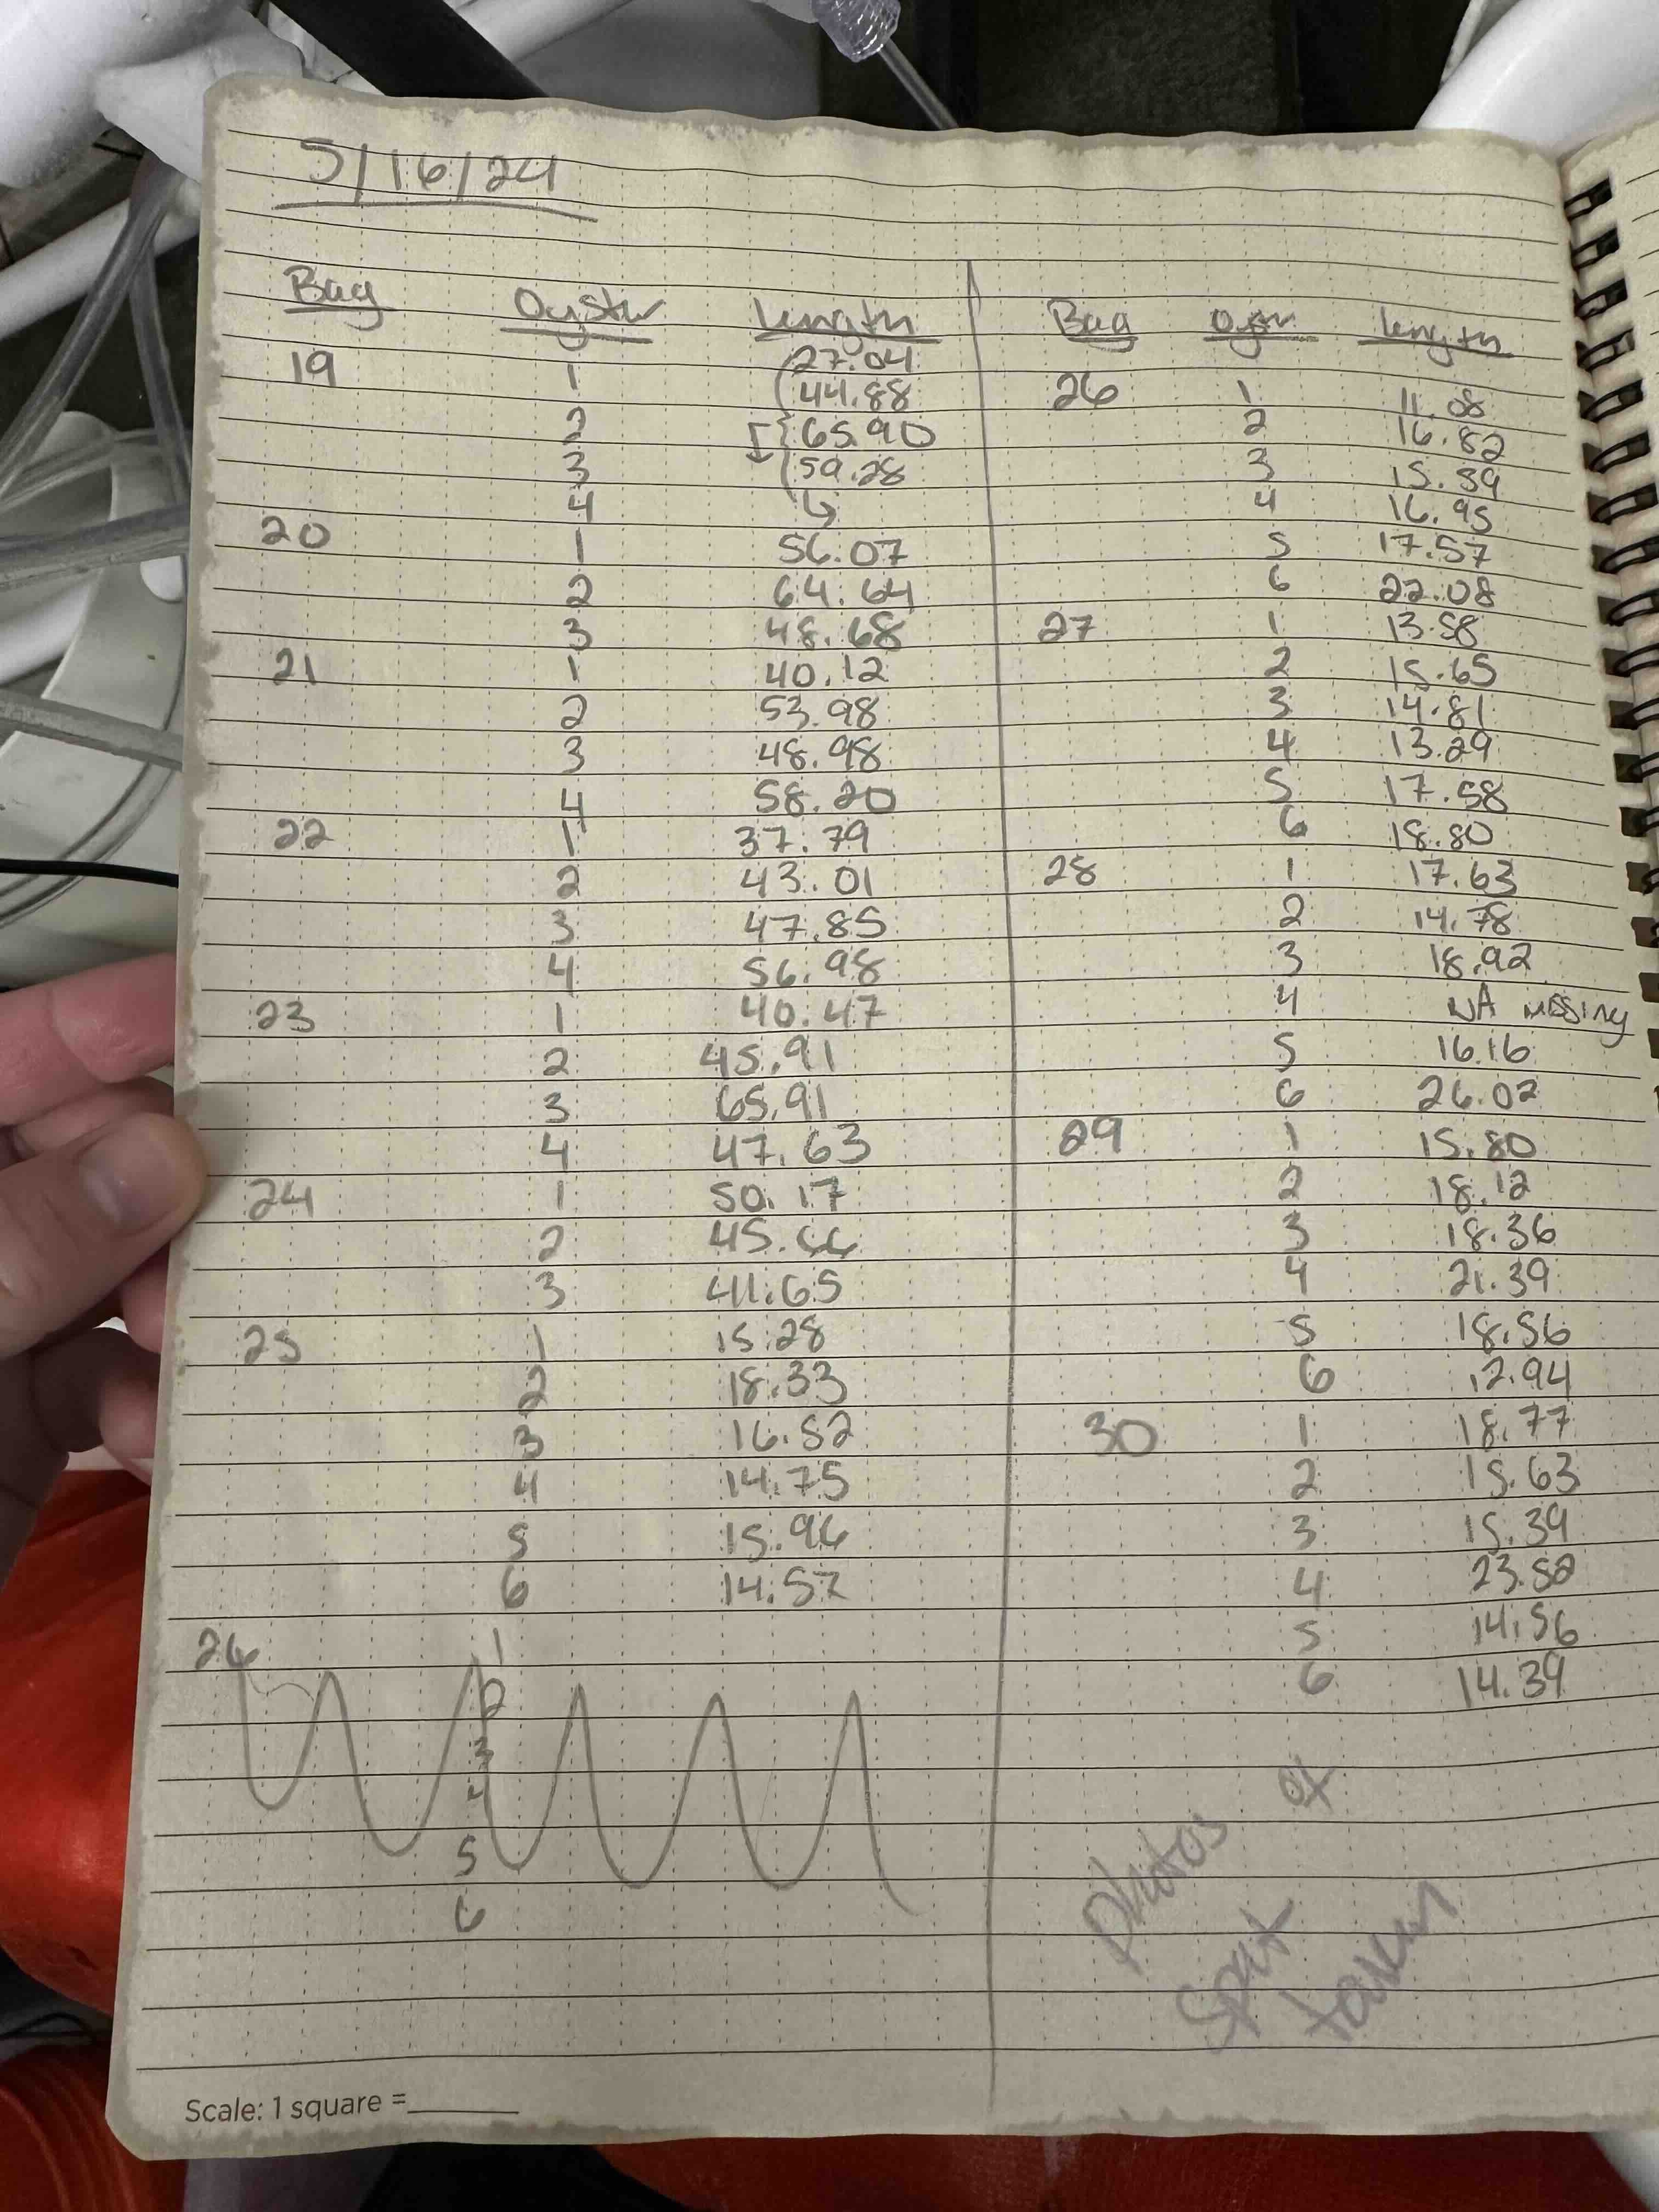 5/16/24
Bag Oyster Length
19 1 27.04
44.88
2 65.90
3 59.28
4
20 1 56.07
2 64.64
3 48.68
21 1 40.12
2 53.98
3 48.98
4 58.20
22 1 37.79
2 43.01
3 47.85
4 56.98
23 1 40.47
2 45.91
3 65.91
4 47.63
24 1 50.17
2 45.66
3 41.65
25 1 15.28
2 18.33
3 16.52
4 14.75
5 15.96
6 14.57
26 1
2
3
4
5
6
Bag Oyster length
26 1 11.08
2 16.82
3 15.59
4 16.95
5 17.57
6 22.08
27 1 13.58
2 15.65
3 14.81
4 13.29
5 17.58
6 18.80
28 1 17.63
2 14.78
3 18.92
4 NA missing
5 16.16
6 26.02
29 1 15.80
2 18.12
3 18.36
4 21.39
5 18.56
6 12.94
30 1 18.77
2 15.63
3 15.39
4 23.52
5 14.56
6 14.39
photos of
spat
taken
Scale: 1 square =